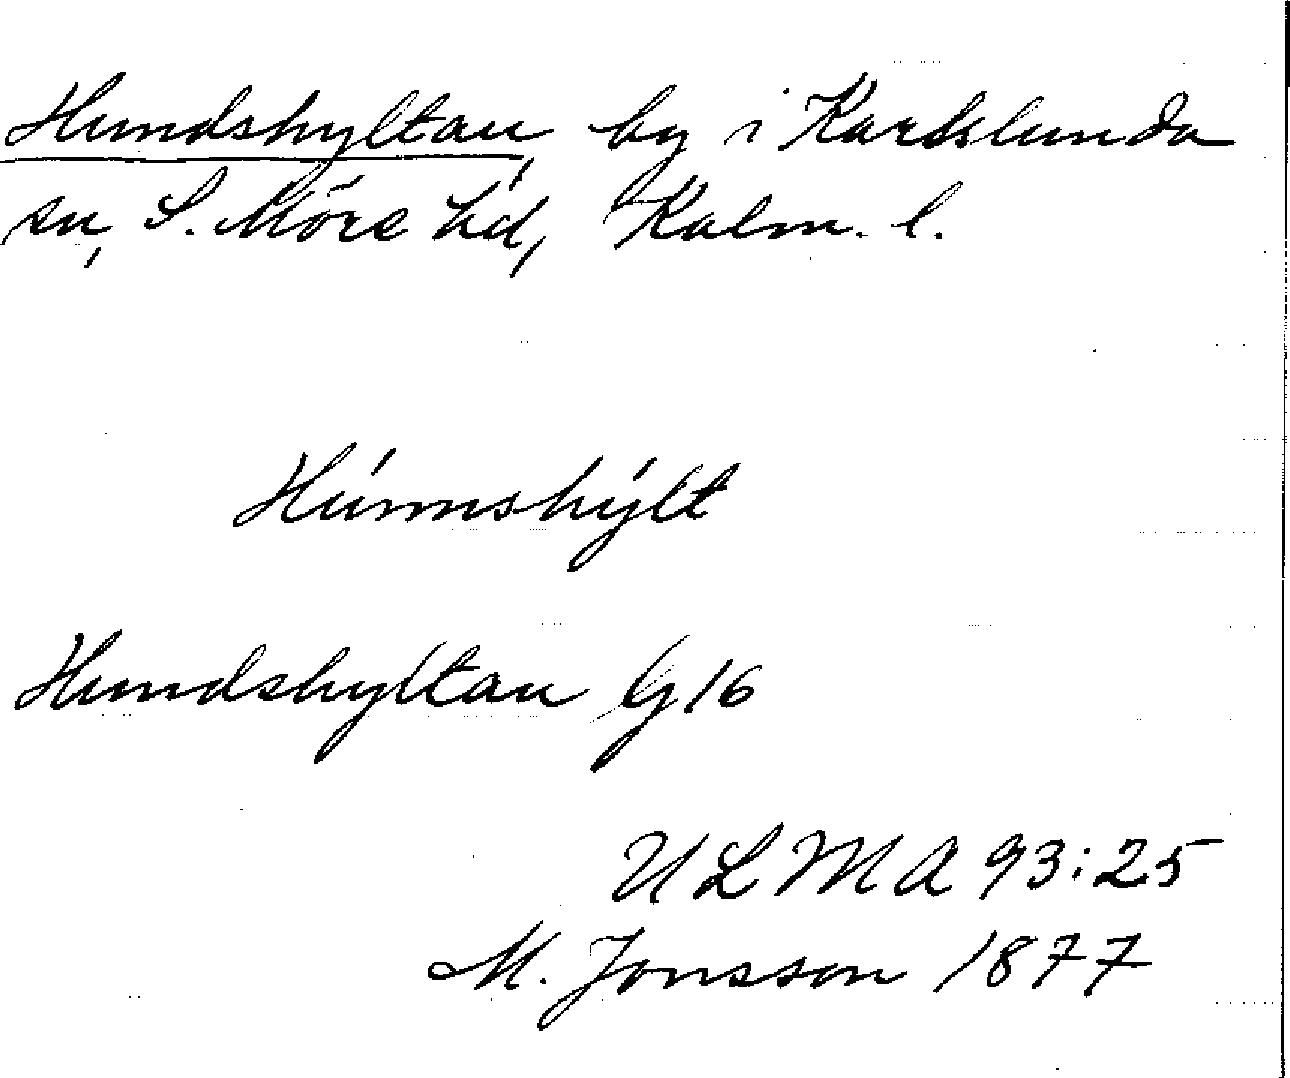 Hundshyltan, by i Karlslunda
sn, S. Möre hd, Kalm. l.
Húnnshýlt
Hundshyltan G 16
ULMA 93:25
M. Jonsson 1877